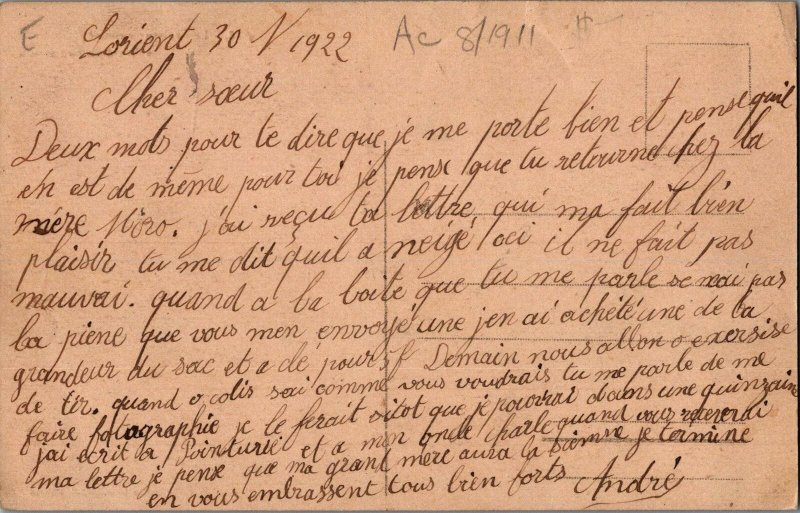 E
Lorient 30 N 1922
Ac 8/1911
Cher sœur
Deux mots pour te dire que je me porte bien et pense quil
en est de même pour toi je pense que tu retourne chez la
mère Moro. j'ai reçu ta lettre qui ma fait bien
plaisir tu me dit quil a neigé ici il ne fait pas
mauvai. quand a la boite que tu me parle se nai pas
la piene que vous men envoyé une jen ai achété une de la
grandeur du sac et a clé pour 5f Demain nous allon o exersise
de tir. quand o colis sai comme vous voudrais tu me parle de me
faire fotographie je le ferait sitot que je pourrai dans une quinzaine
jai ecrit a Pointurié et a mon oncle Charle quand vous
ma lettre je pense que ma grand mère aura la sienne je termine
en vous embrassent tous bien forts André